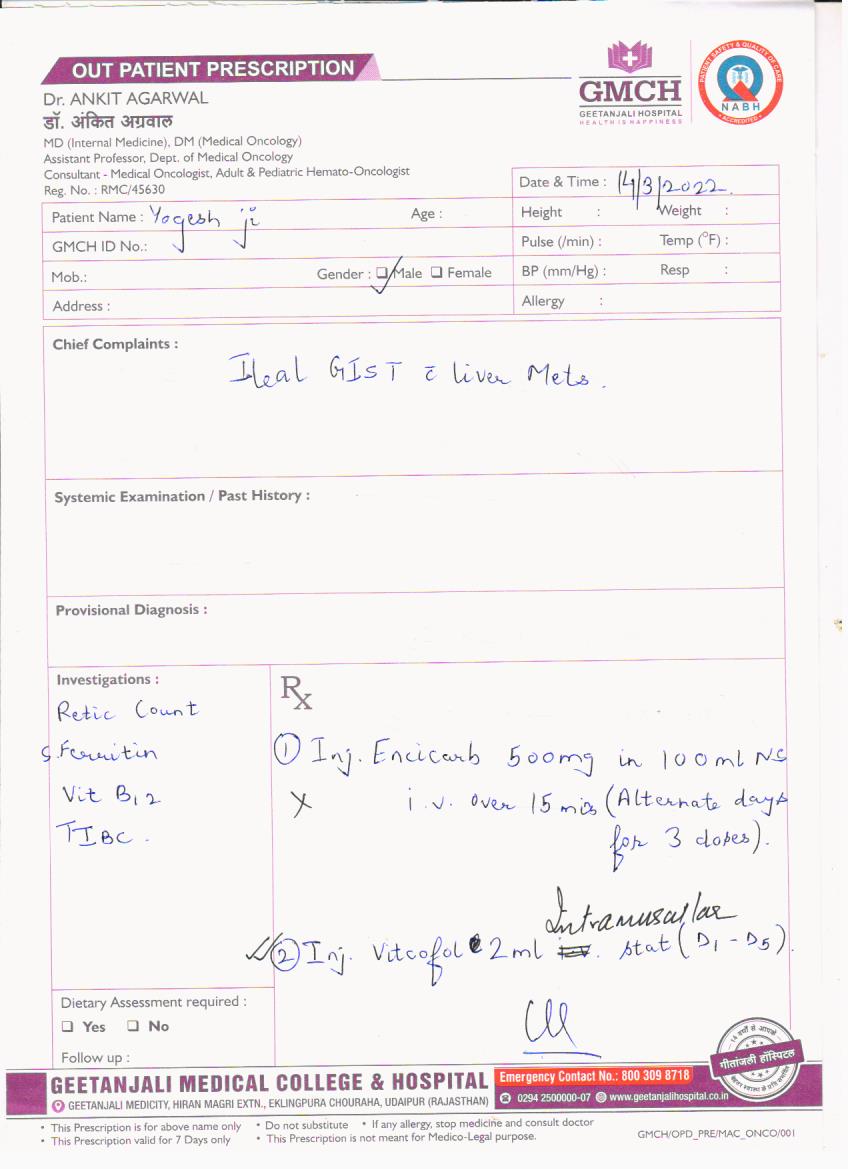 OUT PATIENT PRESCRIPTION
GMCH
GEETANJALI HOSPITAL
HEALTH IS HAPPINESS
PATIENT SAFETY & QUALITY OF CARE
NABH
ACCREDITED
Dr. ANKIT AGARWAL
डॉ. अंकित अग्रवाल
MD (Internal Medicine), DM (Medical Oncology)
Assistant Professor, Dept. of Medical Oncology
Consultant - Medical Oncologist, Adult & Pediatric Hemato-Oncologist
Reg. No. : RMC/45630
Date & Time : 14/3/2022.
Patient Name : Yogesh ji Age :
Height : Weight :
GMCH ID No.:
Pulse (/min) : Temp (°F) :
Mob.: Gender : ☐ Male ☐ Female
BP (mm/Hg) : Resp :
Address :
Allergy :
Chief Complaints :
Ileal GIST c̄ liver Mets.
Systemic Examination / Past History :
Provisional Diagnosis :
Investigations :
Retic Count
S. Ferritin
Vit B12
TIBC.
Rx
① Inj. Encicarb 500mg in 100ml NS
X i.v. over 15 mis (Alternate days
for 3 doses).
Intramusculas
② Inj. Vitcofol 2ml stat (D1 - D5).
Dietary Assessment required :
☐ Yes ☐ No
Follow up :
गीतांजली हॉस्पिटल
GEETANJALI MEDICAL COLLEGE & HOSPITAL
GEETANJALI MEDICITY, HIRAN MAGRI EXTN., EKLINGPURA CHOURAHA, UDAIPUR (RAJASTHAN)
Emergency Contact No.: 800 309 8718
0294 2500000-07 www.geetanjalihospital.co.in
• This Prescription is for above name only • Do not substitute • If any allergy, stop medicine and consult doctor
• This Prescription valid for 7 Days only • This Prescription is not meant for Medico-Legal purpose.
GMCH/OPD_PRE/MAC_ONCO/001